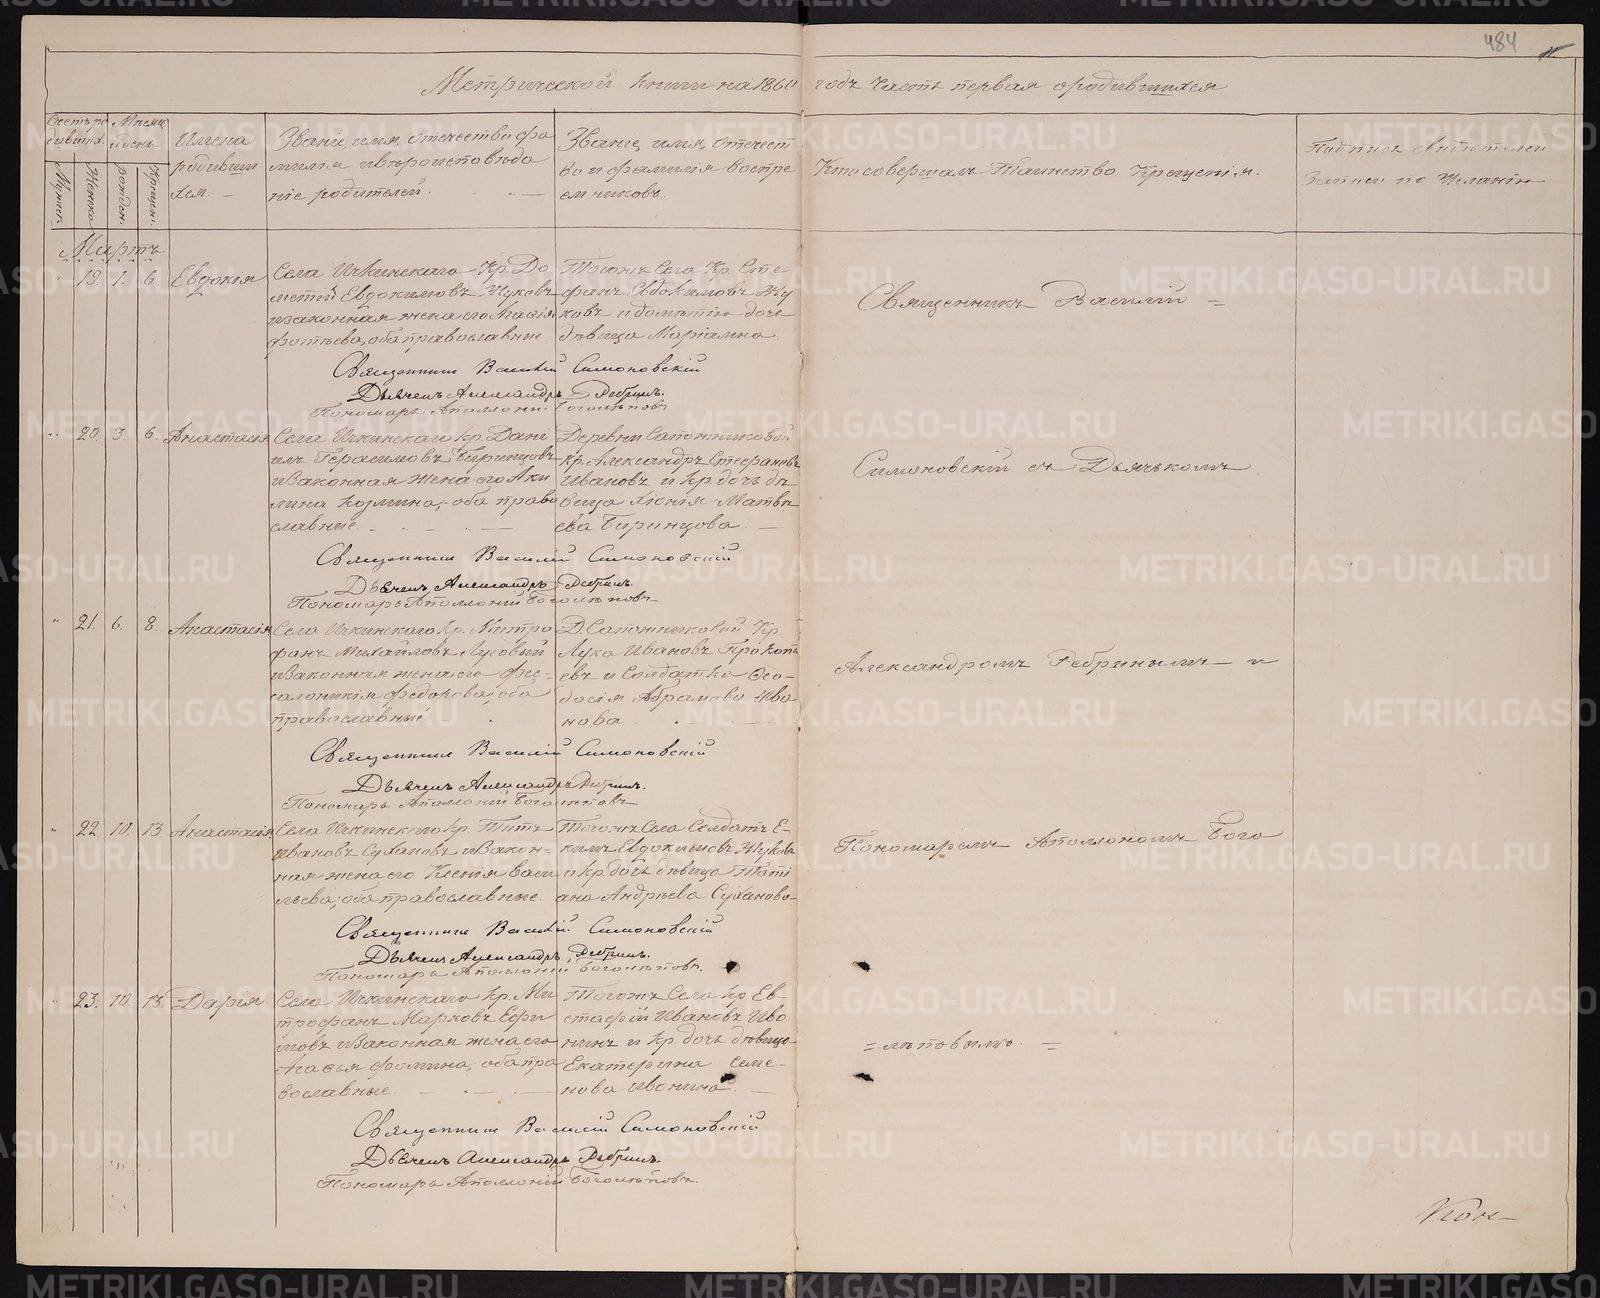 484
Метрической книги на 1860 годъ Часть первая о родившихся
Счетъ ро
дившихся
Мужес.
Женска
Мѣсяц
и день
рожден.
Крещен.
Имена
родивши
хся.
Званіе, имя, отечество фа
милія и вѣроисповѣда
ніе родителей.
Званіе, имя, отечест
во и фамилія воспре
емниковъ.
Кто совершалъ Таинство Крещенія.
Подписи свидѣтелей
Записи по желанію
Мартъ
19. 1. 6. Евдокія
Села Ичкинскаго Кр. До
метій Евдокимовъ Жуковъ
и законная жена его Агафія
Фотѣева, оба православные.
Тогожъ Села Кр. Сте
фанъ Евдокимовъ Жу
ковъ и дометія дочь
дѣвица Маріамна.
Священникъ Василій Симоновскій
Дьячекъ Александръ Ребринъ.
Пономарь Аполлоній Боголѣповъ
20. 3. 6. Анастасія
Села Ичкинскаго Кр. Дані
илъ Герасимовъ Биринцовъ
и законная жена его Аки
лина Козмина, оба право
славные.
Деревни Сапожниковой
Кр. Александръ Стефановъ
Ивановъ и Кр. дочь дѣ
вица Хіонія Матвѣ
ева Биринцова.
Священникъ Василій Симоновскій
Дьячекъ Александръ Ребринъ.
Пономарь Аполлоній Боголѣповъ
21. 6. 8. Анастасія
Села Ичкинскаго Кр. Митро
фанъ Михайловъ Луговый
и законная жена его Фес-
салоникія Федорова, оба
православные
Д. Сапожниковой Кр.
Лука Ивановъ Прокопь
евъ и Солдатка Ѳео-
досія Абрамова Ива
нова.
Священникъ Василій Симоновскій
Дьячекъ Александръ Ребринъ.
Пономарь Аполлоній Боголѣповъ
22. 10. 13. Анастасія
Села Ичкинскаго Кр. Титъ
Ивановъ Сухановъ и закон-
ная жена его Ксенія Васи
льева, оба православные.
Тогожъ Села Солдатъ Е-
кимъ Евдокимовъ Жуковъ
и Кр. дочь дѣвица Тати
ана Андрѣева Суханова
Священникъ Василій Симоновскій
Дьячекъ Александръ Ребринъ.
Пономарь Аполлоній Боголѣповъ.
23. 10. 13. Дарія
Села Ичкинскаго Кр. Ми
трофанъ Марковъ Ефи
мовъ и законная жена его
Агафья Фомина, оба пра
вославные.
Тогожъ Села Кр. Ев-
стафій Ивановъ Иво
нинъ и Кр. дочь дѣвица
Екатерина Семе-
нова Ивонина
Священникъ Василій Симоновскій
Дьячекъ Александръ Ребринъ.
Пономарь Аполлоній Боголѣповъ.
Священникъ Василій =
Симоновскій съ Дьячкомъ
Александромъ Ребринымъ и
Пономаремъ Аполлономъ Бого
= лѣповымъ. =
METRIKI.GASO-URAL.RU